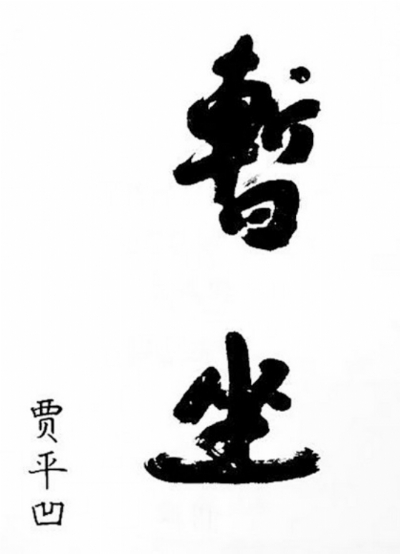 暫坐
贾平凹